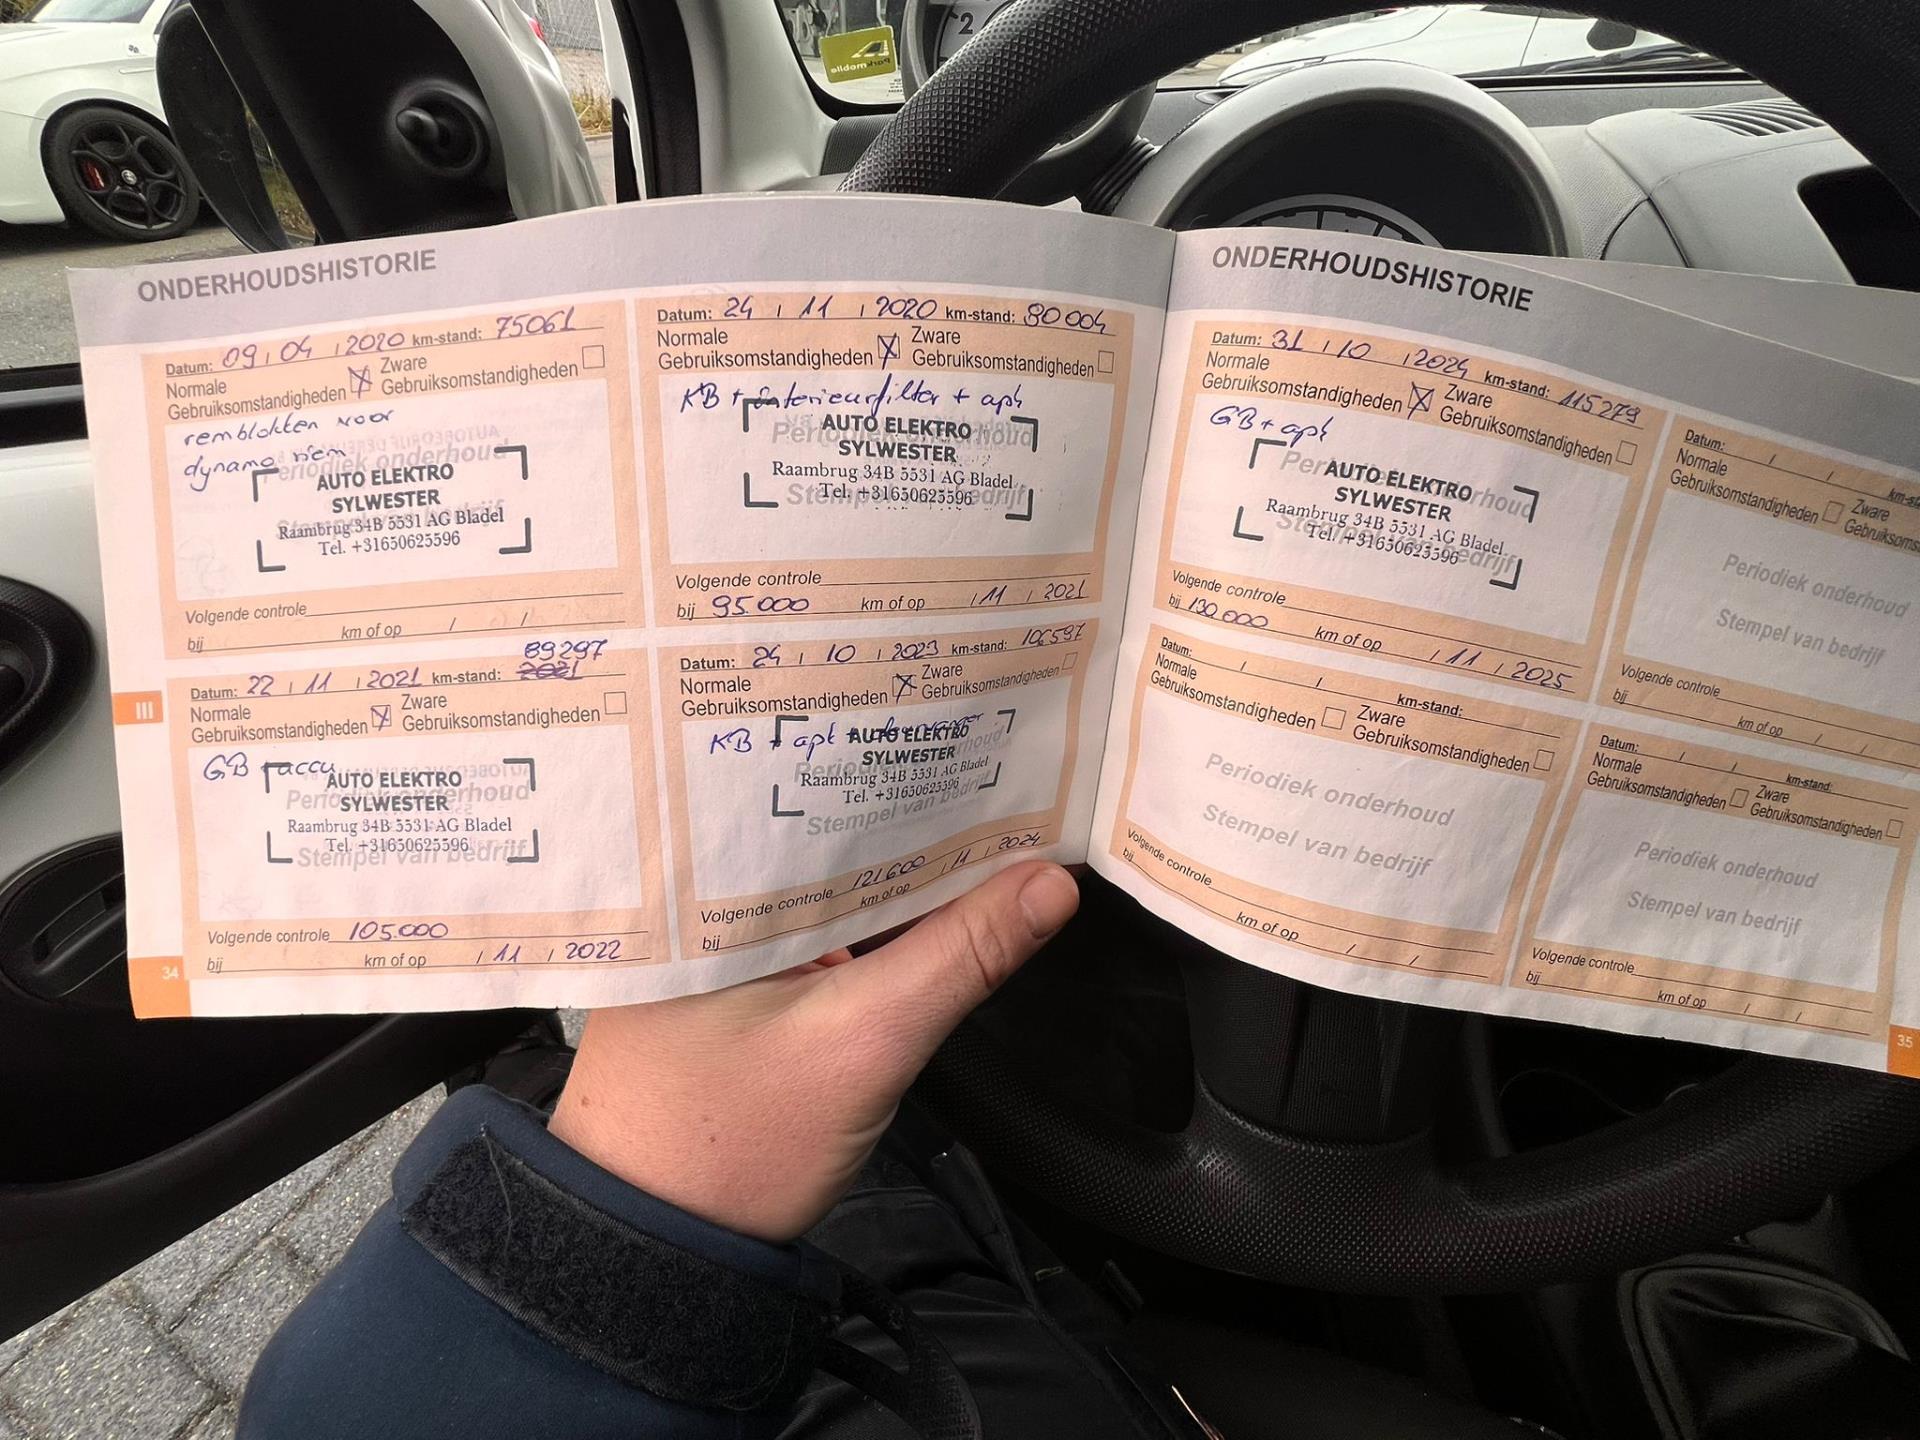 Parkmobile
2
ONDERHOUDSHISTORIE
Datum: 09 / 04 / 2020 km-stand: 75061
Normale
Gebruiksomstandigheden
Zware
Gebruiksomstandigheden
remblokken voor
dynamo riem
Periodiek onderhoud
AUTO ELEKTRO
SYLWESTER
Raambrug 34B 5531 AG Bladel
Tel. +31650625596
Volgende controle
bij km of op / /
Datum: 24 / 11 / 2020 km-stand: 80004
Normale
Gebruiksomstandigheden
Zware
Gebruiksomstandigheden
KB + interieurfilter + apk
Periodiek onderhoud
AUTO ELEKTRO
SYLWESTER
Raambrug 34B 5531 AG Bladel
Tel. +31650625596
Stempel van bedrijf
Volgende controle
bij 95.000 km of op / 11 / 2021
III
Datum: 22 / 11 / 2021 km-stand: 89297
Normale
Gebruiksomstandigheden
Zware
Gebruiksomstandigheden
GB + accu
Periodiek onderhoud
AUTO ELEKTRO
SYLWESTER
Raambrug 34B 5531 AG Bladel
Tel. +31650625596
Stempel van bedrijf
Volgende controle 105.000
bij km of op / 11 / 2022
34
Datum: 24 / 10 / 2023 km-stand: 106597
Normale
Gebruiksomstandigheden
Zware
Gebruiksomstandigheden
KB + apk +
AUTO ELEKTRO
SYLWESTER
Raambrug 34B 5531 AG Bladel
Tel. +31650625596
Stempel van bedrijf
Volgende controle 121600
bij km of op / 11 / 2024
ONDERHOUDSHISTORIE
Datum: 31 / 10 / 2024 km-stand: 115279
Normale
Gebruiksomstandigheden
Zware
Gebruiksomstandigheden
GB + apk
Periodiek onderhoud
AUTO ELEKTRO
SYLWESTER
Raambrug 34B 5531 AG Bladel
Tel. +31650625596
Stempel van bedrijf
Volgende controle
bij 130.000 km of op / 11 / 2025
Datum: / / km-stand:
Normale
Gebruiksomstandigheden
Zware
Gebruiksomstandigheden
Periodiek onderhoud
Stempel van bedrijf
Volgende controle
bij km of op / /
Datum: / /
Normale
Gebruiksomstandigheden
Zware
Periodiek onderhoud
Stempel van bedrijf
Volgende controle
bij km of op / /
Datum: / / km-stand:
Normale
Gebruiksomstandigheden
Zware
Gebruiksomstandigheden
Periodiek onderhoud
Stempel van bedrijf
Volgende controle
bij km of op / /
35